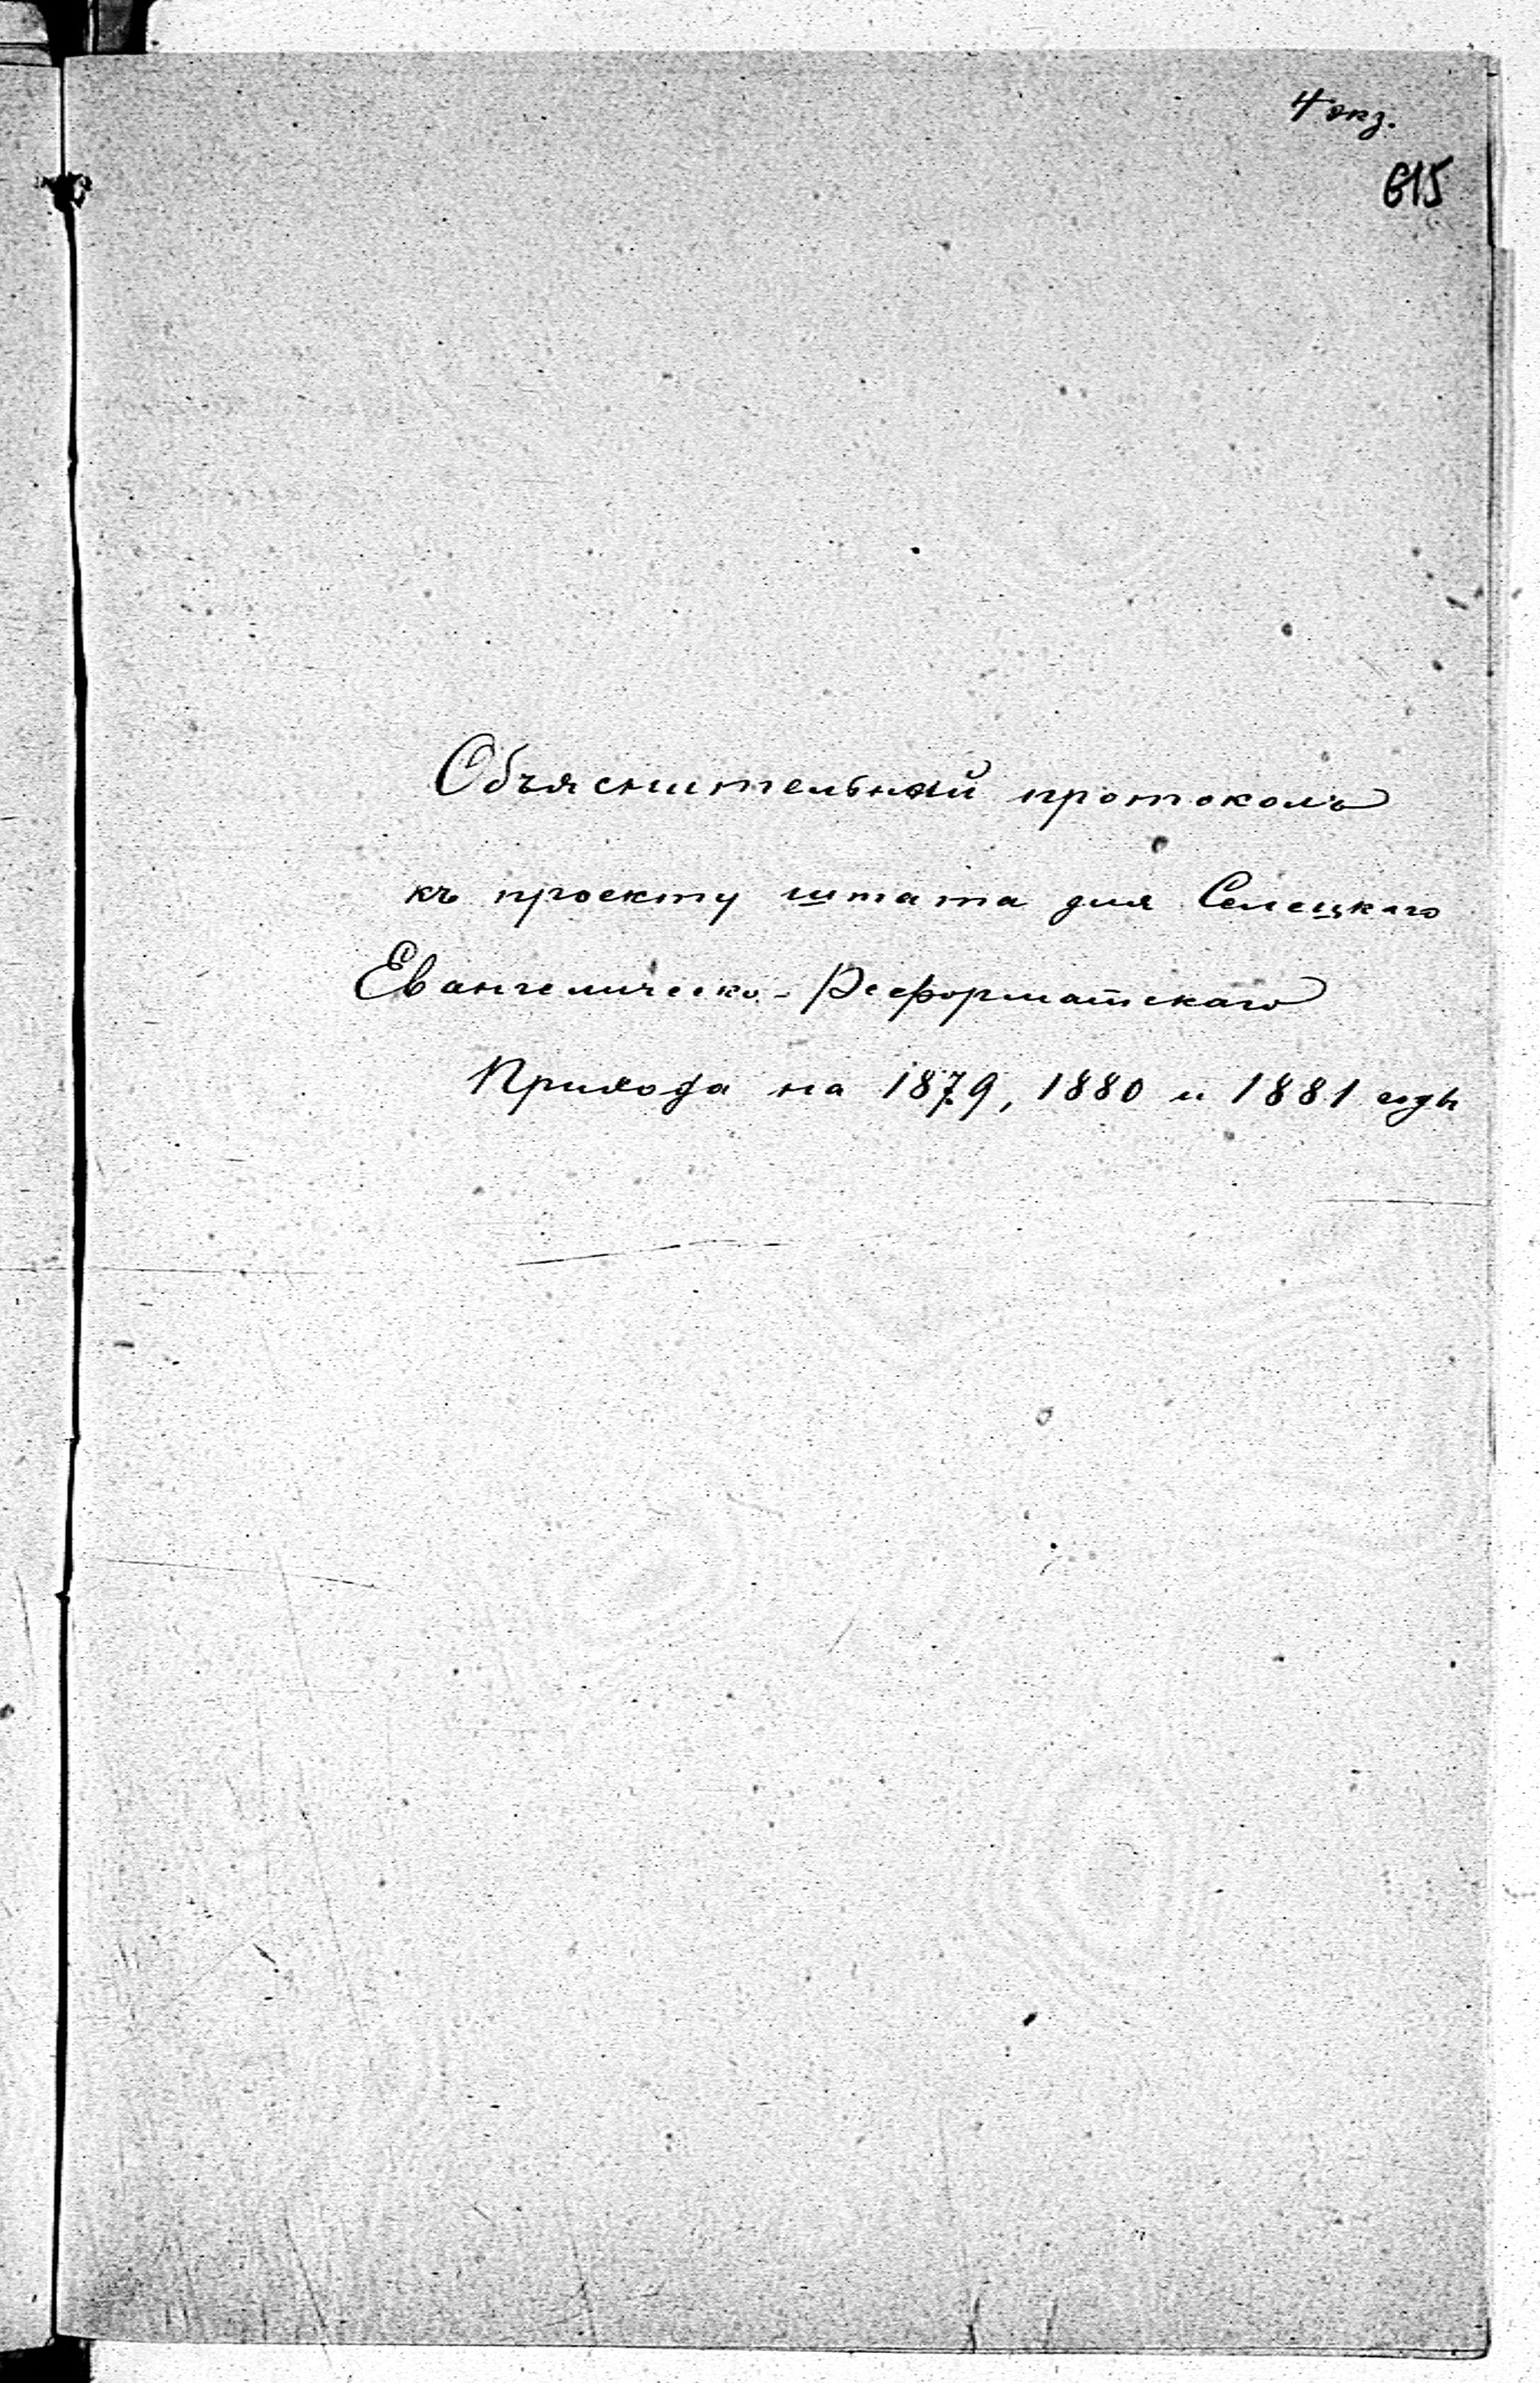 4 экз.
615
Объяснительный протоколъ
къ проекту штата для Селецкаго
Евангелическо-Реформатскаго
Прихода на 1879, 1880 и 1881 годы